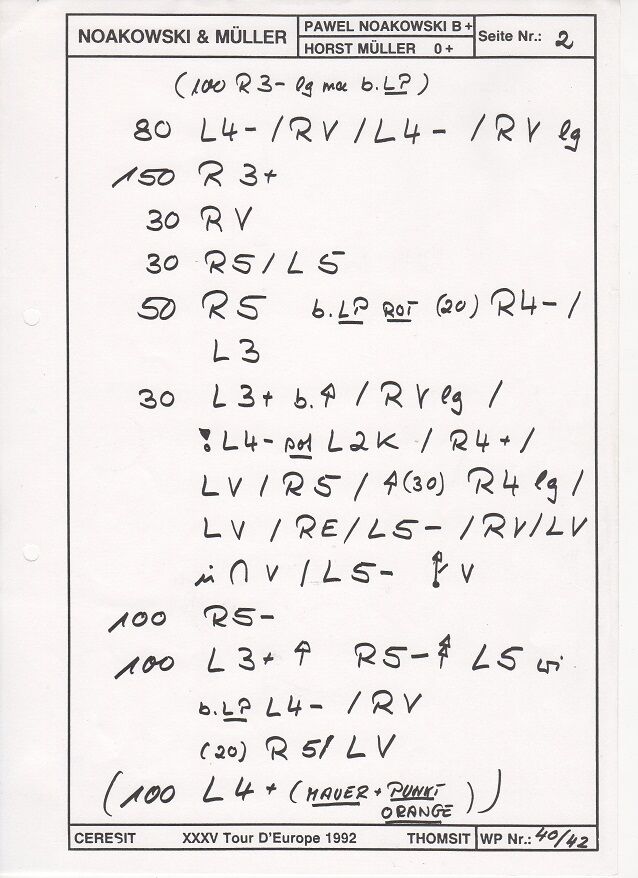 NOAKOWSKI & MÜLLER
PAWEL NOAKOWSKI B+
HORST MÜLLER 0+
Seite Nr.: 2
(100 R3- lg b.LP)
80 L4- / RV / L4- / RV lg
150 R 3+
30 RV
30 R5 / L5
50 R5 b.LP ROT (20) R4- /
L3
30 L3+ b.↑ / RV lg /
! L4- L2K / R4+ /
LV / R5 / ↑(30) R4 lg /
LV / RE / L5- / RV/LV
in ∩ V / L5- V
100 R5-
100 L3+ ↑ R5- L5
b.LP L4- / RV
(20) R5/ LV
(100 L4+ (MAUER + PUNKT
ORANGE))
CERESIT XXXV Tour D'Europe 1992 THOMSIT WP Nr.: 40/42